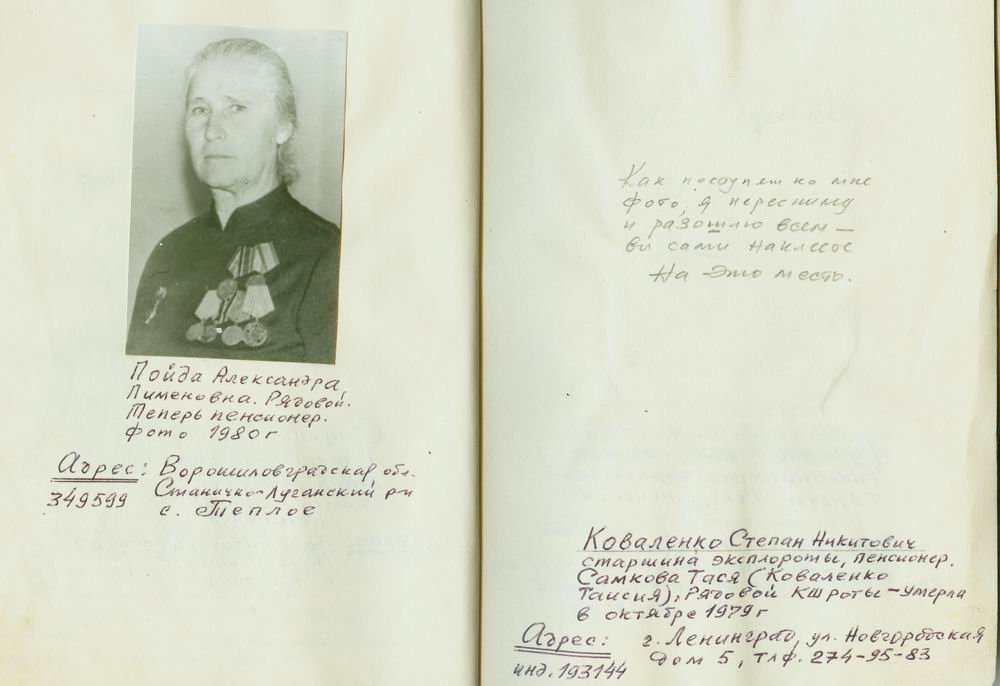 Пойда Александра
Пименовна. Рядовой.
Теперь пенсионер.
фото 1980 г
Адрес: Ворошиловградская обл.
349599 Станично-Луганский р-н
с. Теплое
Как поступят ко мне
фото, я пересниму
и разошлю всем —
вы сами наклеете
На это место.
Коваленко Степан Никитович
старшина эксплороты, пенсионер.
Самкова Тася (Коваленко
Таисия), Рядовой Кшроты – умерла
в октябре 1979 г
Адрес: г. Ленинград, ул. Новгородская
инд. 193144 Дом 5, тлф. 274-95-83